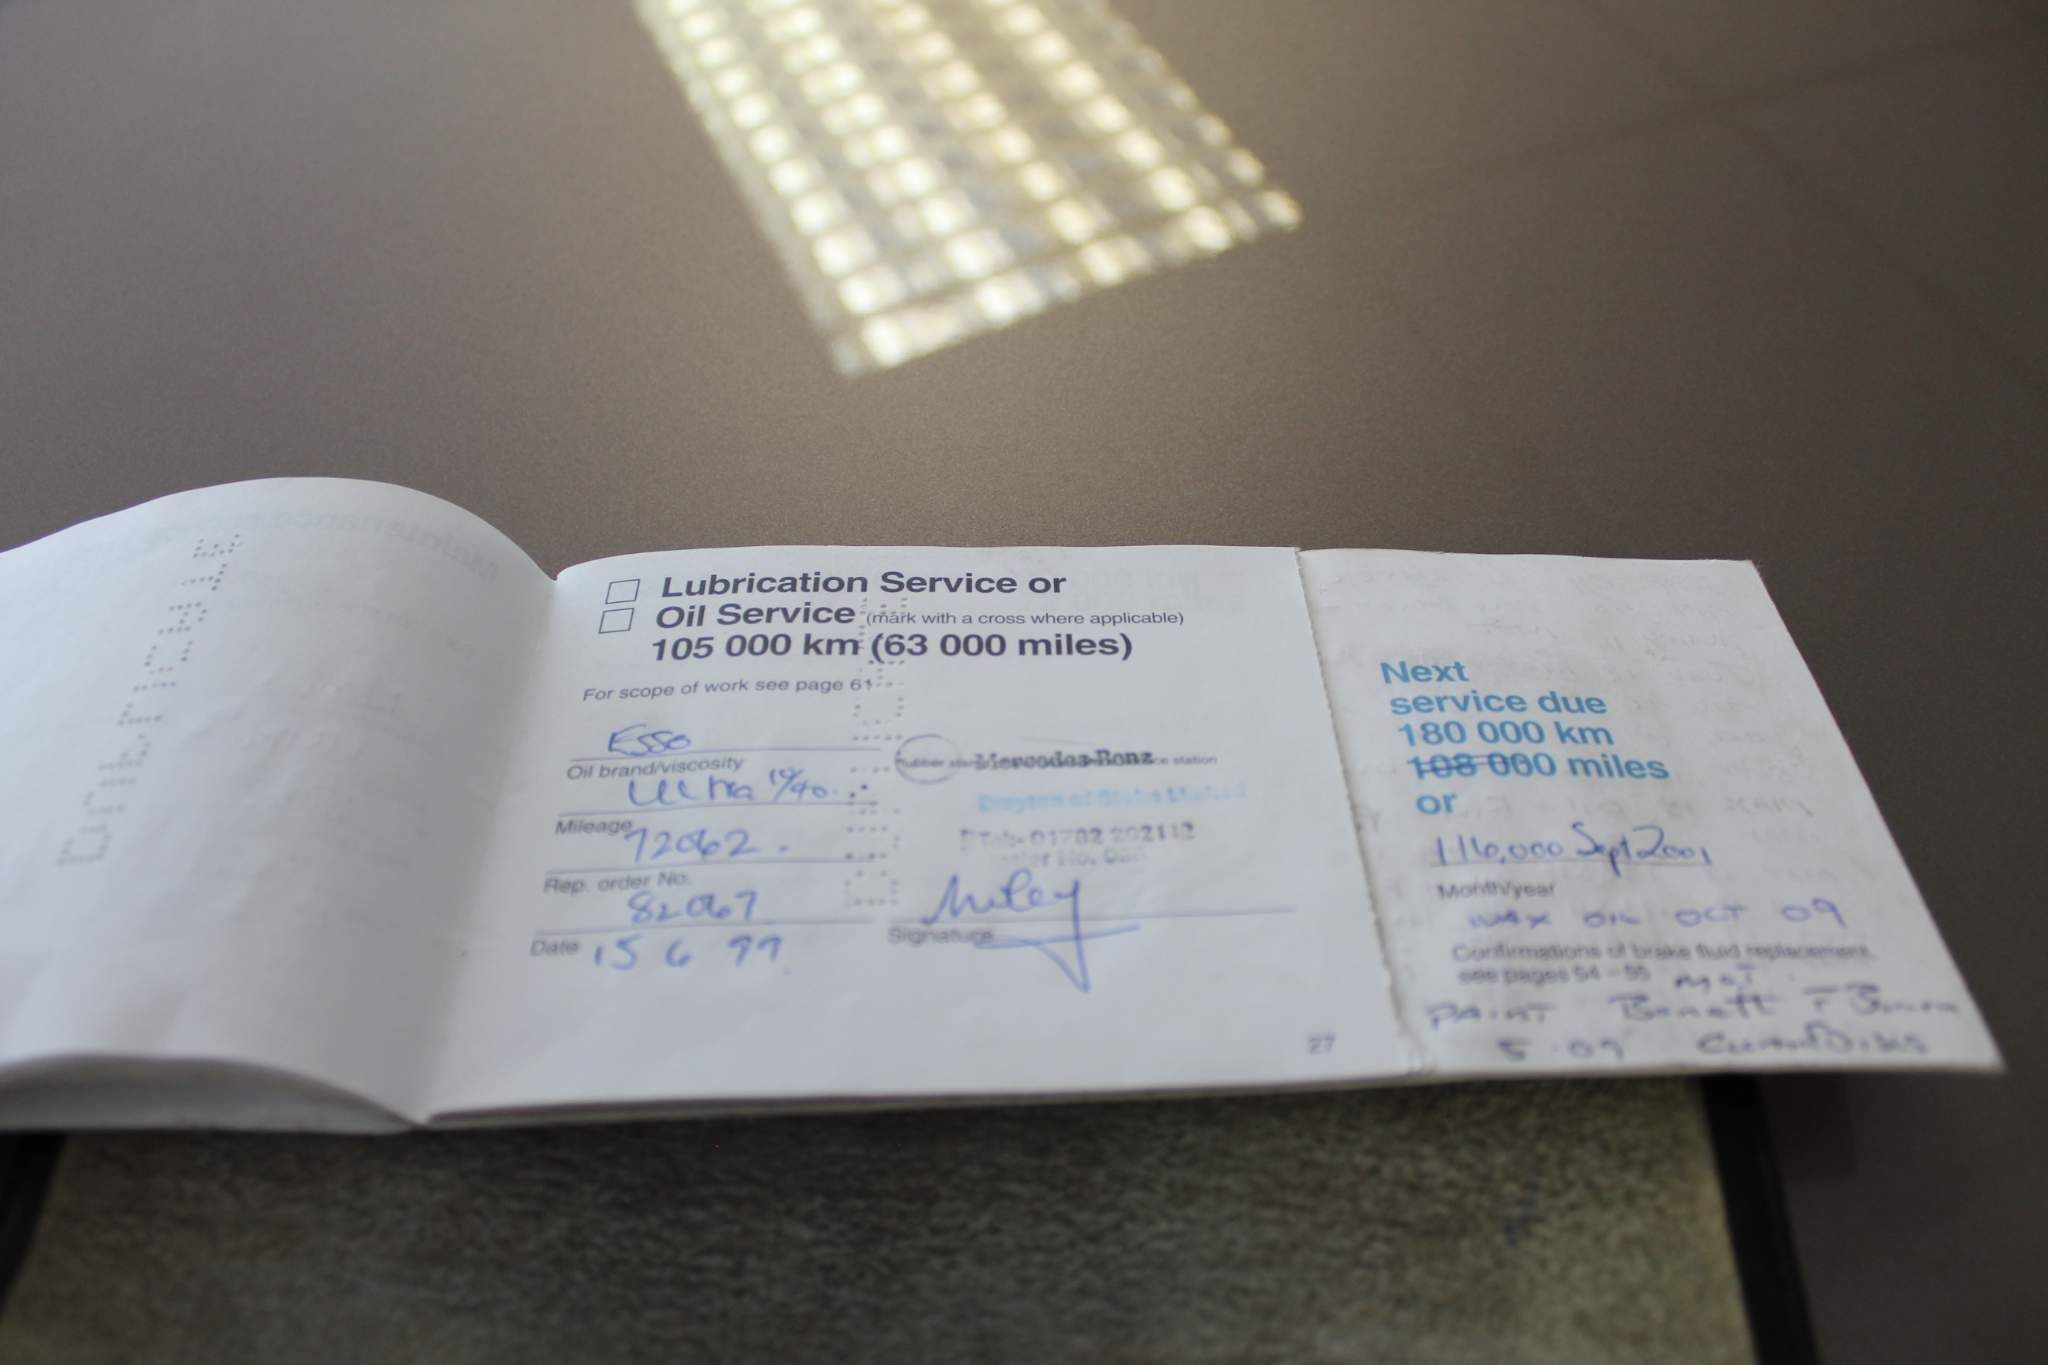 Lubrication Service or
Oil Service (mark with a cross where applicable)
105 000 km (63 000 miles)
For scope of work see page 61
Esso
Oil brand/viscosity
Ultra 10/40.
Mileage
72062.
Rep. order No.
82067
Date 15 6 99
Mercedes-Benz
station
Tel:- 01782 202112
Signature
27
Next
service due
180 000 km
108 000 miles
or
116,000 Sept 2001
Month/year
WAX OIL OCT 09
Confirmations of brake fluid replacement,
see pages 54 – 55
MOT
PAINT Bonett
5 . 09